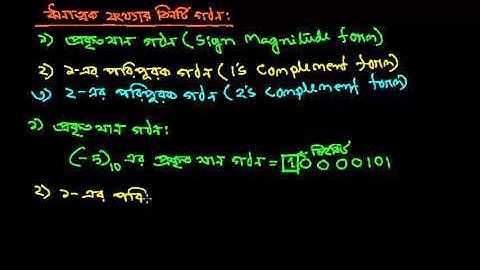 ঋনাত্মক সংখ্যার তিনটি গঠন:
১) প্রকৃত মান গঠন (Sign Magnitude form)
২) ১-এর পরিপূরক গঠন (1's Complement form)
৩) ২-এর পরিপূরক গঠন (2's Complement form)
১) প্রকৃত মান গঠন:
চিহ্নবিট
(-5)10 এর প্রকৃত মান গঠন = 10000101
২) ১-এর পরি